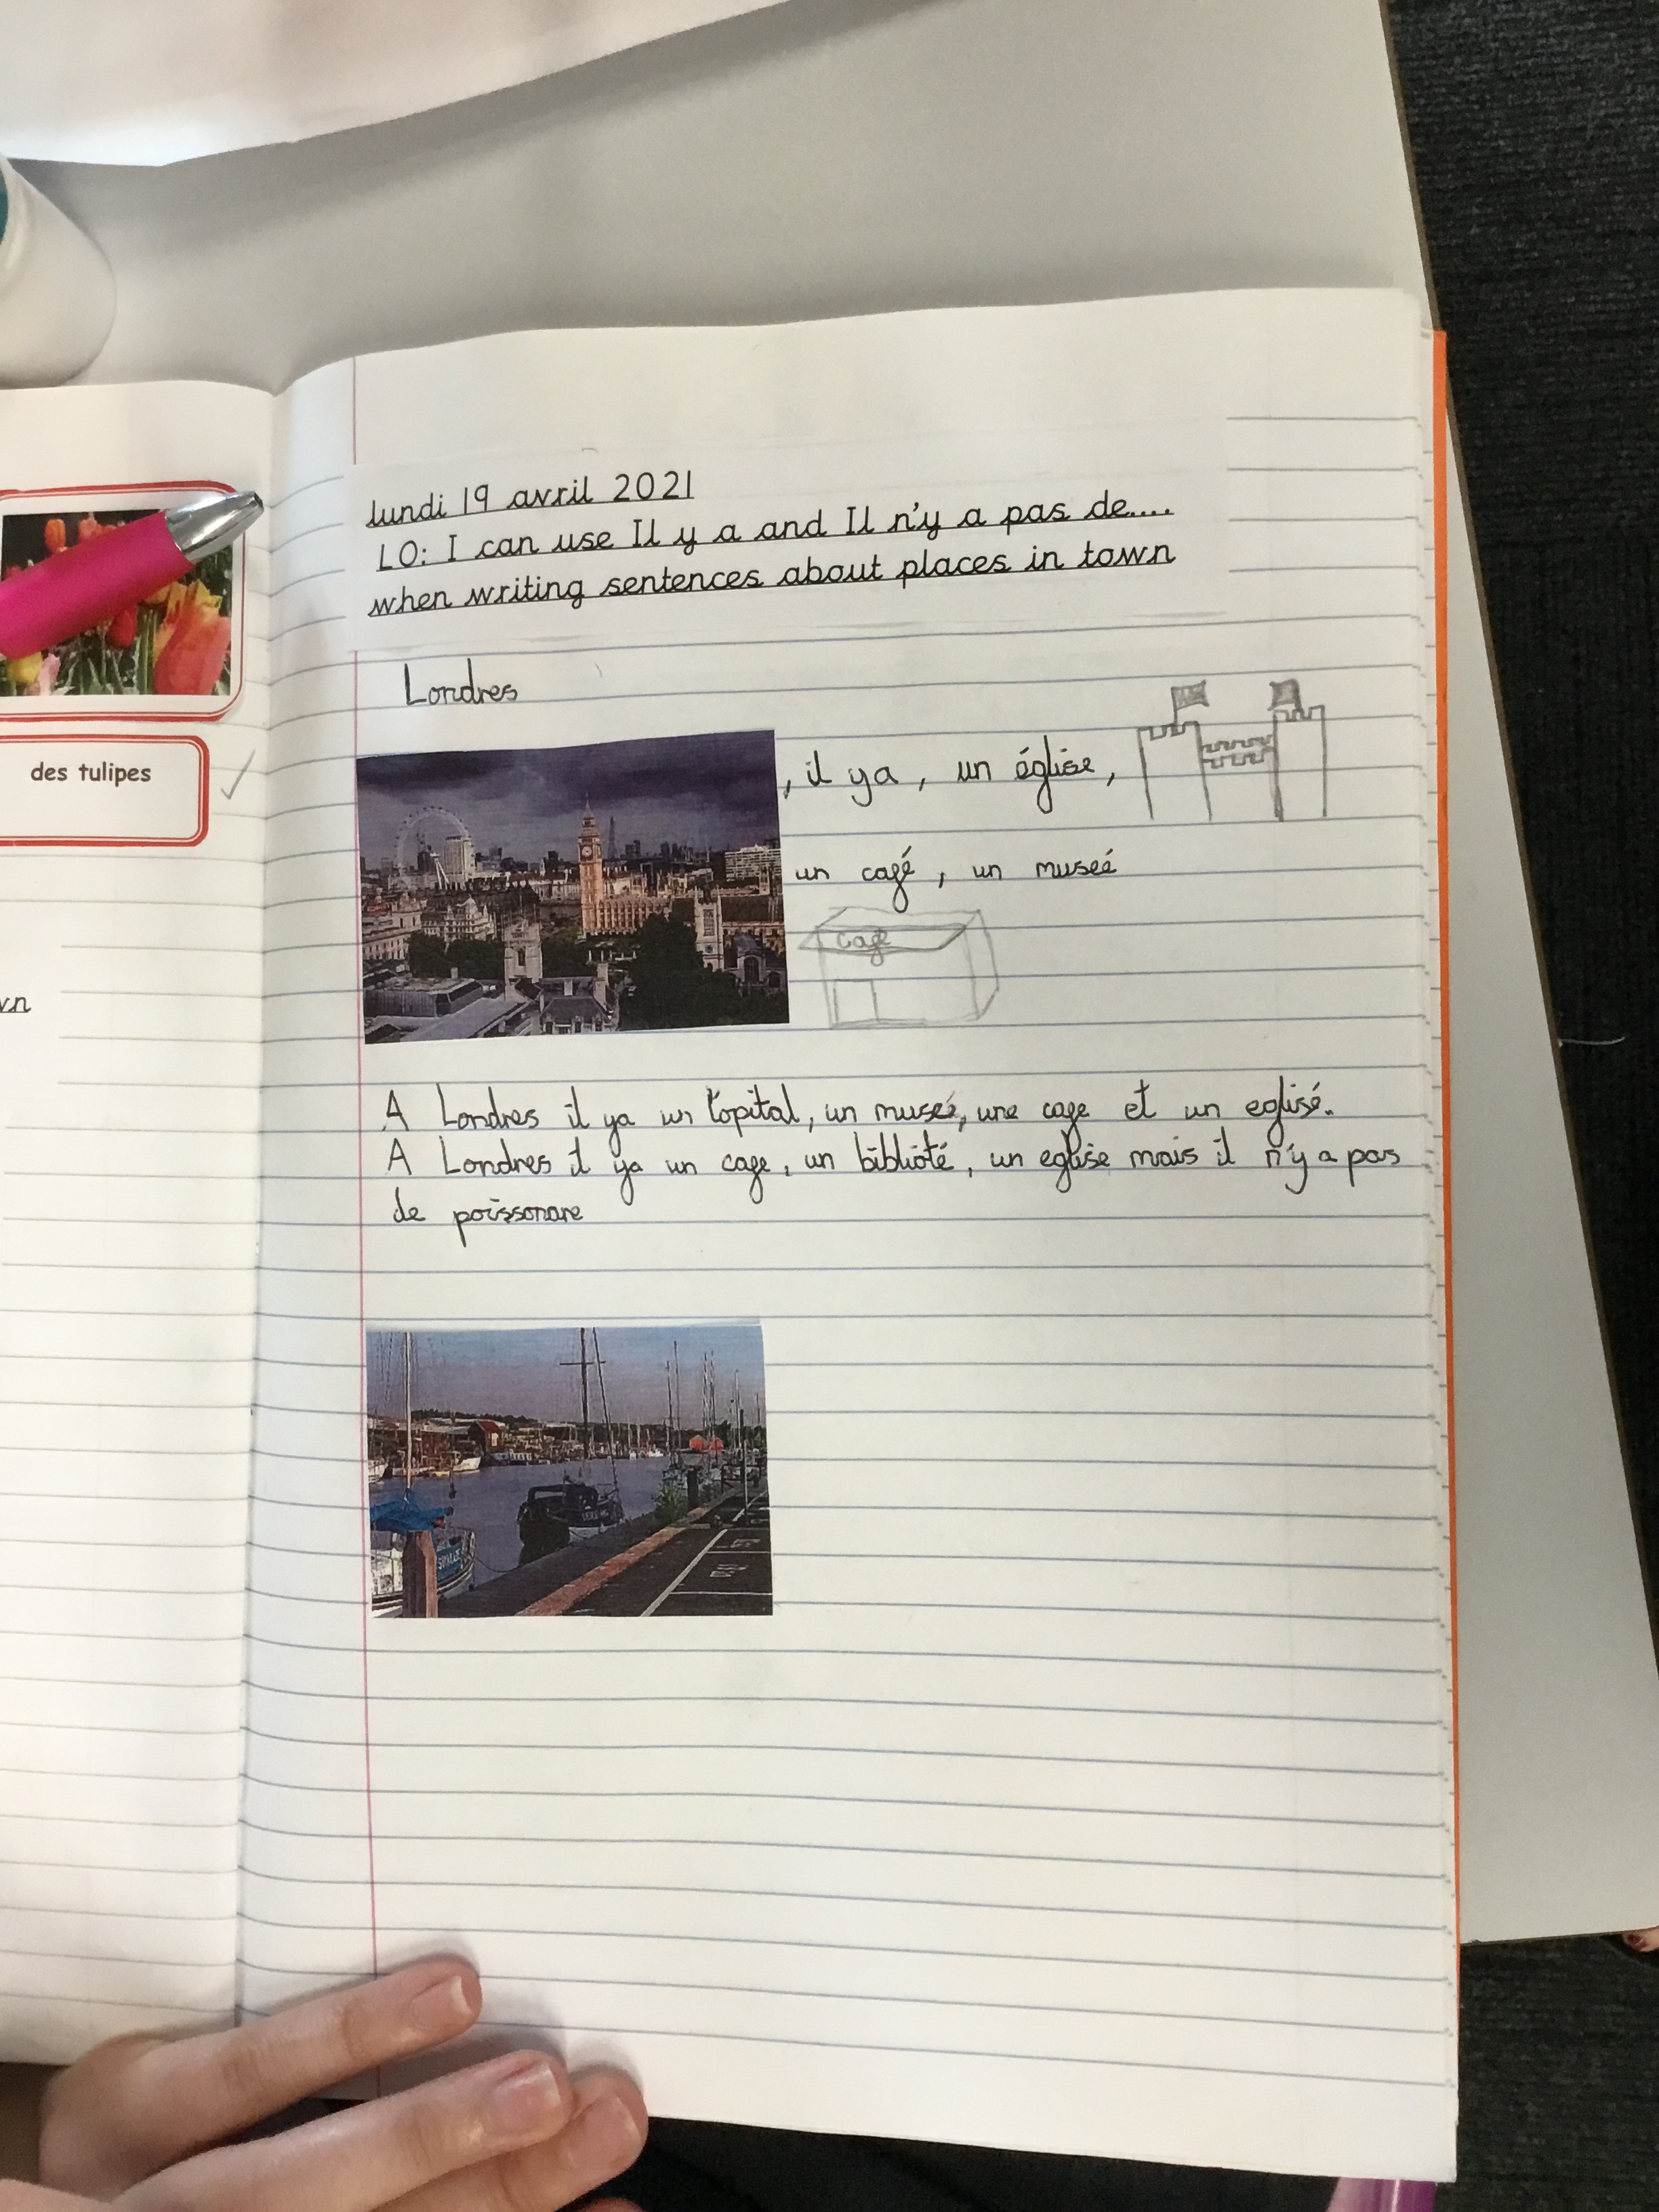 des tulipes
wn
lundi 19 avril 2021
LO: I can use Il y a and Il n'y a pas de....
when writing sentences about places in town
Londres
, il ya, un église,
un cagé, un museé
cage
A Londres il ya un l'opital, un museé, une cage et un eglisé.
A Londres il ya un cage, un biblioté, un eglise mais il n'y a pas
de poissonare